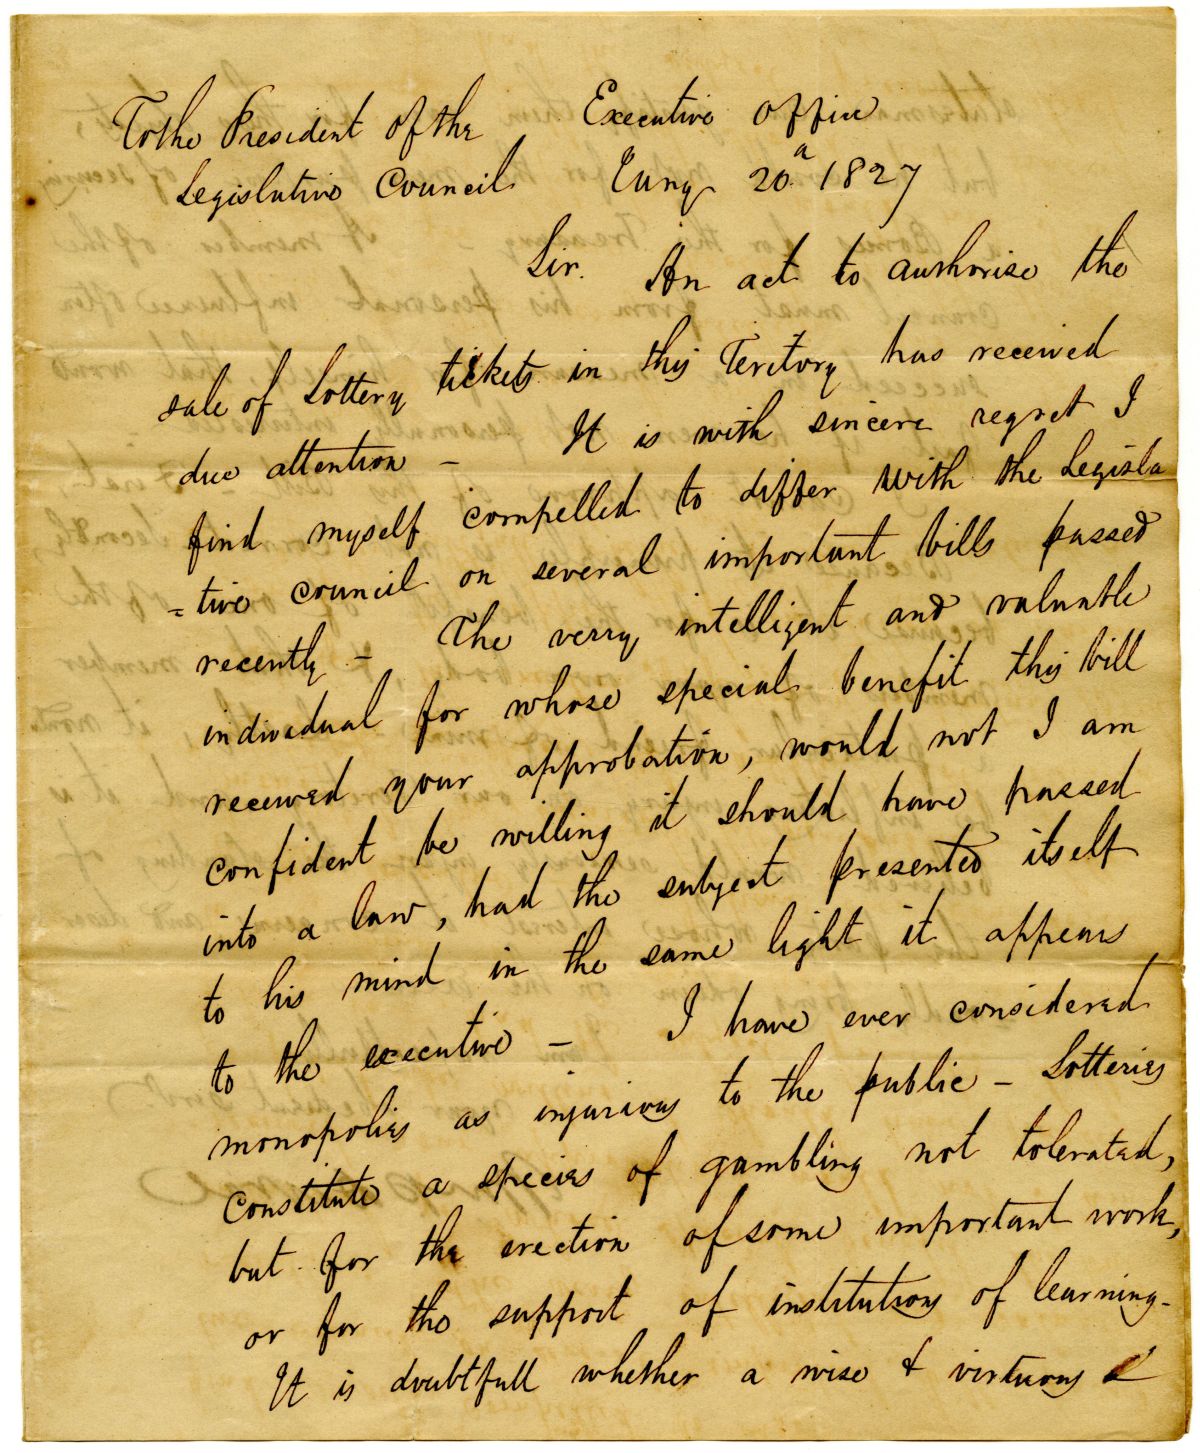 To the President of the
Legislative Council
Executive Office
Jany 20th 1827
Sir. An act to authorise the
sale of Lottery tickets in this Teritory has received
due attention - It is with sincere regret I
find myself compelled to differ with the Legisla
=tive council on several important bills passed
recently - The verry intelligent and valuable
individual for whose special benefit this bill
received your approbation, would not I am
confident be willing it should have passed
into a law, had the subject presented itself
to his mind in the same light it appears
to the executive - I have ever considered
monopolies as injurious to the public - Lotteries
constitute a species of gambling not tolerated,
but for the erection of some important work,
or for the support of institutions of learning -
It is doubtfull whether a wise & virtuous